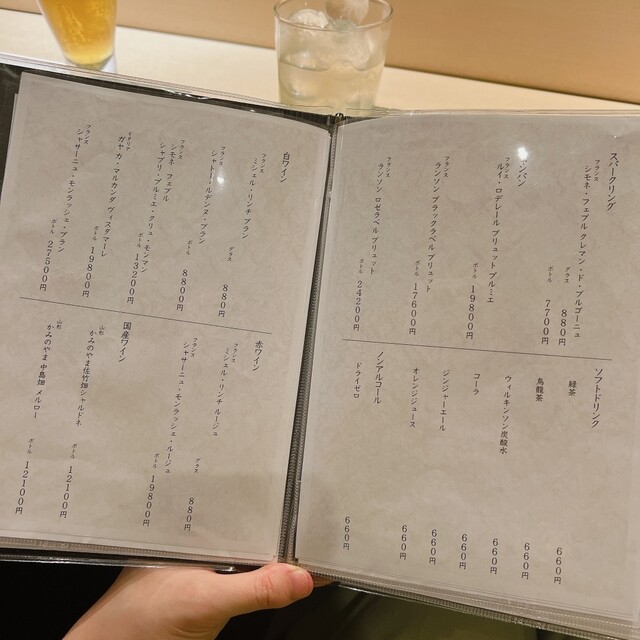 スパークリング
フランス
シモネ・フェブル クレマン・ド・ブルゴーニュ
グラス 880円
ボトル 7700円
シャンパン
フランス
ルイ・ロデレール ブリュット プルミエ
ボトル 19800円
フランス
ランソン ブラックラベル ブリュット
ボトル 17600円
フランス
ランソン ロゼラベル ブリュット
ボトル 24200円
ソフトドリンク
緑茶 660円
烏龍茶 660円
ウィルキンソン炭酸水 660円
コーラ 660円
ジンジャーエール 660円
オレンジジュース 660円
ノンアルコール
ドライゼロ 660円
白ワイン
フランス
ミシェル・リンチ ブラン
グラス 880円
フランス
シャトー・ルデンヌ・ブラン
ボトル 8800円
フランス
シモネ・フェブル
シャブリ・プルミエ・クリュ・モンマン
ボトル 13200円
イタリア
ガヤ カ・マルカンダ ヴィスタマーレ
ボトル 19800円
フランス
シャサーニュ・モンラッシェ・ブラン
ボトル 27500円
赤ワイン
フランス
ミシェル・リンチ ルージュ
グラス 880円
フランス
シャサーニュ・モンラッシェ・ルージュ
ボトル 19800円
国産ワイン
山形
かみのやま佐竹畑シャルドネ
ボトル 12100円
山形
かみのやま 中島畑 メルロー
ボトル 12100円